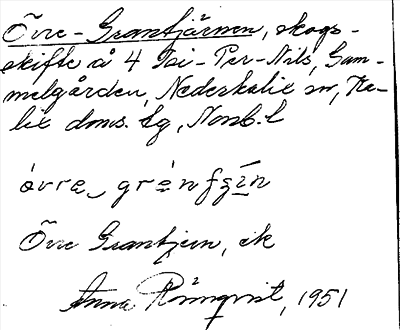 Övre-Grantjärnen, skogs-
skifte å 4 Isi-Per-Nils, Gam-
melgården, Nederkalix sn, Ka-
lix doms. lg, Norrb. l
övre grénfzín
Övre Grantjern, ek
Anna Rönnqvist, 1951